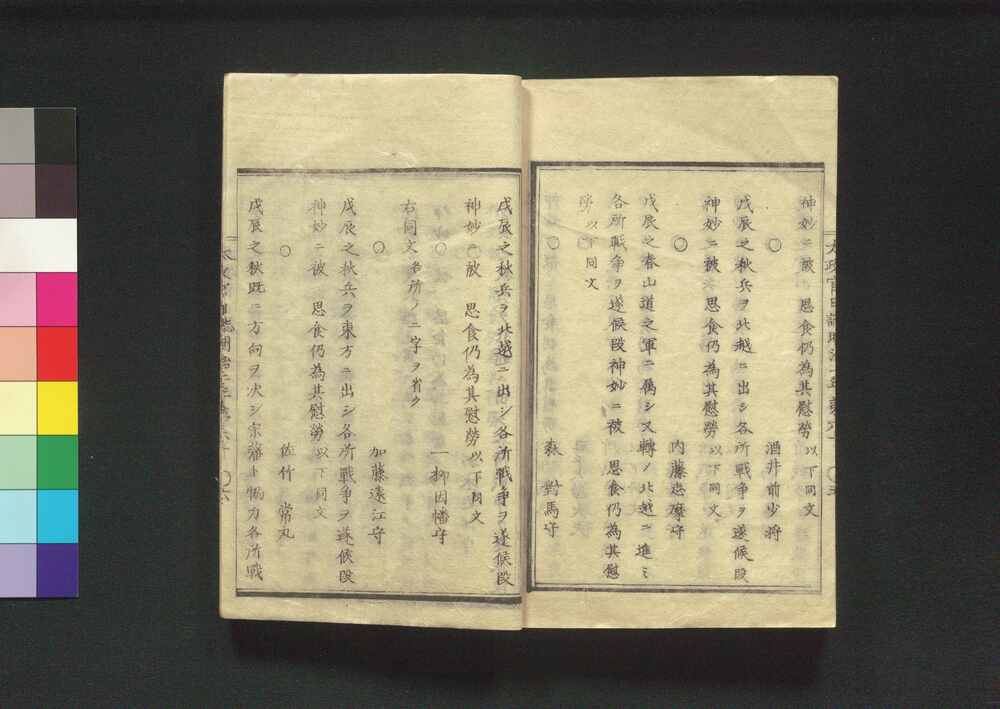 太政官日誌明治二年 ○五
神妙ニ被 思食仍為其慰勞以下同文
○ 酒井前少将
戊辰之秋兵ヲ北越ニ出シ各所戦争ヲ遂候段
神妙ニ被 思食仍為其慰勞以下同文
○ 内藤志摩守
戊辰之春山道之軍ニ属シ又轉ノ北越ニ進ミ
各所戦争ヲ遂候段神妙ニ被 思食仍為其慰
勞以下同文
○ 森 對馬守
戊辰之秋兵ヲ北越ニ出シ各所戦争ヲ遂候段
神妙ニ被 思食仍為其慰勞以下同文
○ 一柳因幡守
右同文各所ノ二字ヲ省ク
○ 加藤遠江守
戊辰之秋兵ヲ東方ニ出シ各所戦争ヲ遂候段
神妙ニ被 思食仍為其慰勞以下同文
○ 佐竹 常丸
戊辰之秋既ニ方向ヲ决シ宗藩ト協力各所戦
○六